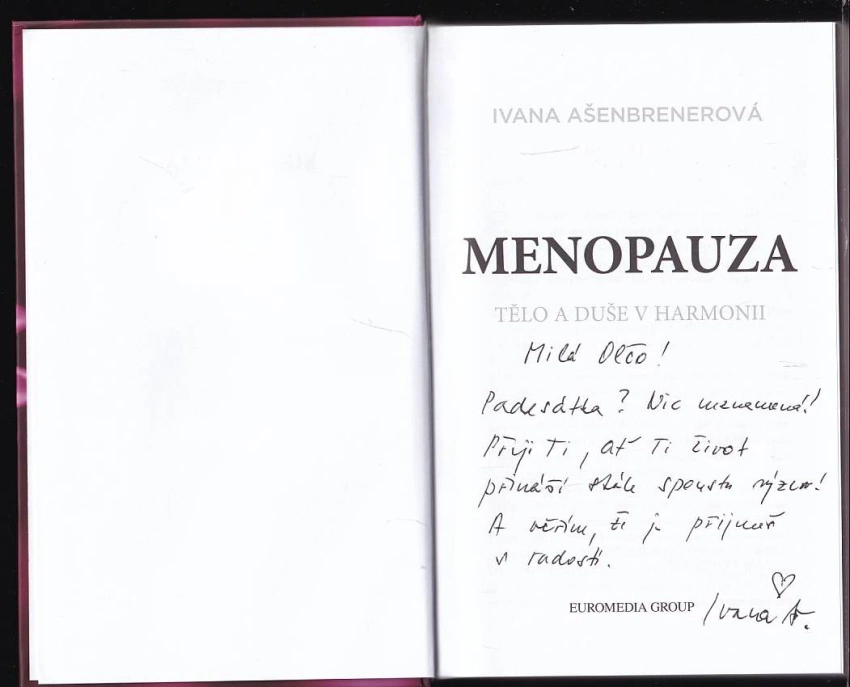 IVANA AŠENBRENEROVÁ
MENOPAUZA
TĚLO A DUŠE V HARMONII
Milá Olčo!
Padesátka? Nic neznamená!
Přeji Ti, ať Ti život
přináší stále spoustu výzev!
A věřím, že je přijmeš
s radostí.
EUROMEDIA GROUP Ivana A.